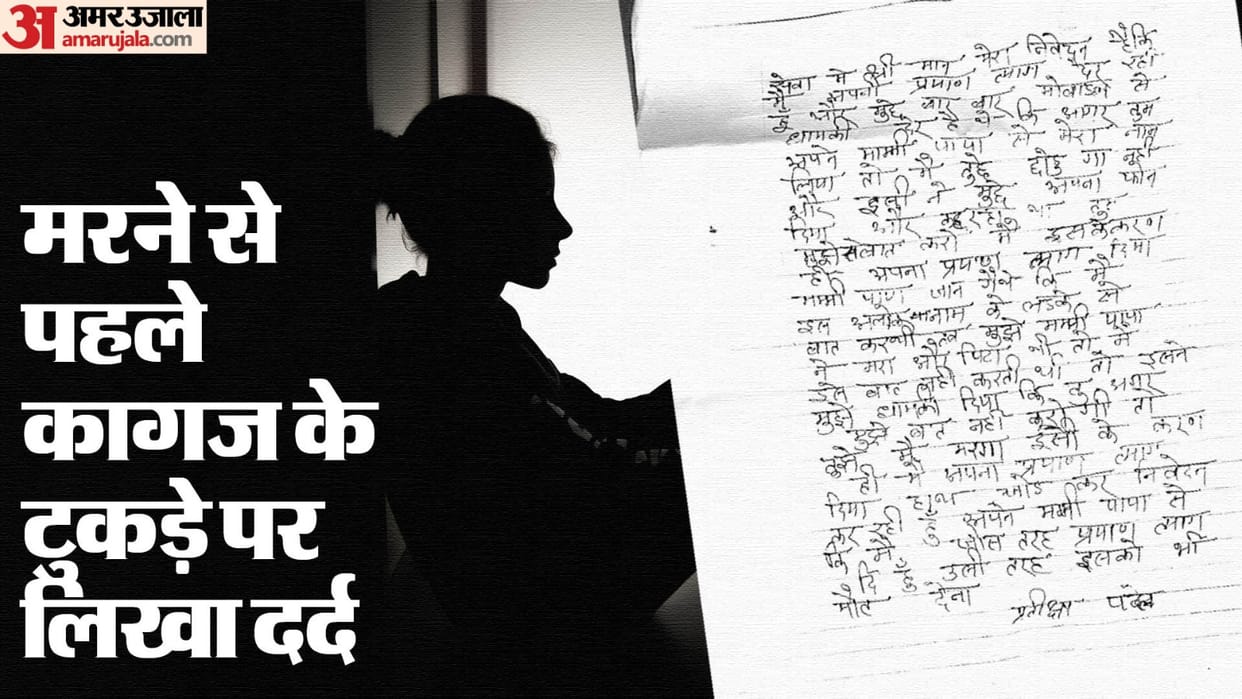 अमर उजाला
amarujala.com
मरने से
पहले
कागज के
टुकड़े पर
लिखा दर्द
सेवा में श्री मान मेरा निवेदन है कि
मै अपना प्रयाण त्याग कर रही
हूँ और मुझे बार बार मोबाइल से
धामकी दे रहे थे कि अगर तुम
अपने माम्मी पापा से मेरा नाम
लिया तो मै तुझे छोडु गा नही
और इसी ने मुझे अपना फोन
दिया और कह रहा था तुम
मुझसे बात करो मै इसके करण
ही अपना प्रयाण त्याग दिया
मम्मी पापा जान गये थे कि मै
इस नाम के लडके से
बात करती तब मुझे मम्मी पापा
ने मरा और पिटा भी तो मै
इसे बात नही करती थी तो इसने
मुझे धामकी दिया कि तु अगर
मुझे बात नही करोगी तो
तुझे मै मरगा इसी के करण
ही मै अपना प्रयाण त्याग
दिया हाथ जोड कर निवेदन
कर रही हुँ अपने मम्मी पापा से
कि मै जीस तरह प्रयाण त्याग
दि हुँ उसी तरह इसको भी
मौत देना
प्रतीक्षा